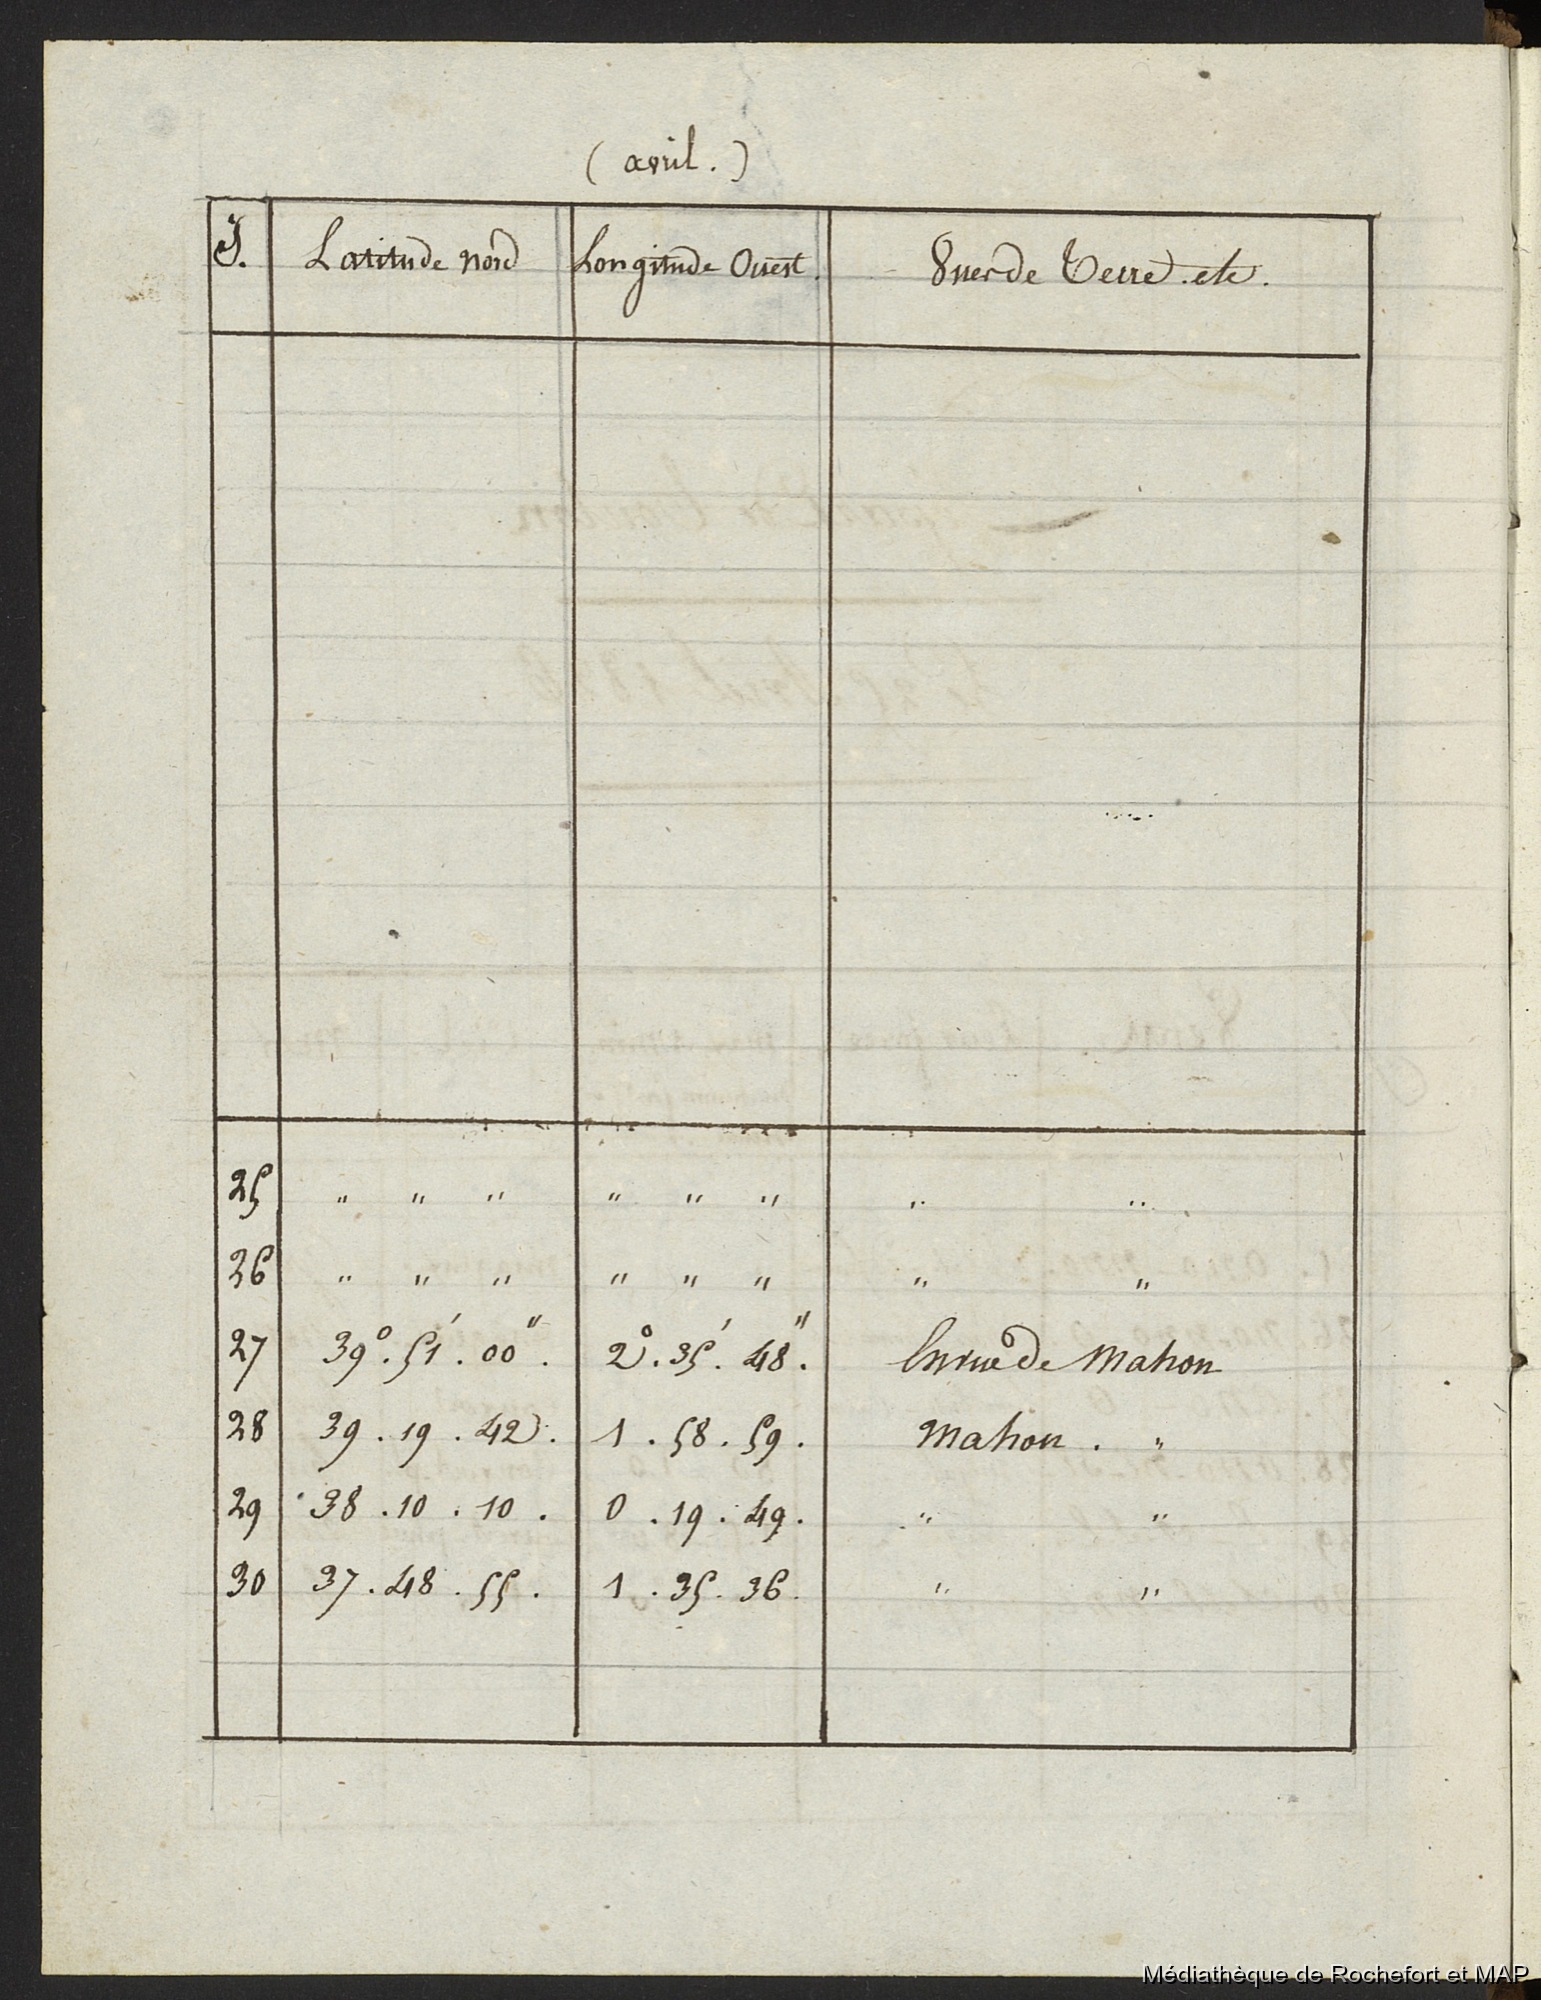 ( avril . )
J. Latitude Nord Longitude Ouest. Vues de Terre . etc .
25 " " " " " " " "
26 " " " " " " " "
27 39° . 51' . 00" . 2° . 35' . 48" . En vue de Mahon
28 39 . 19 . 42 . 1 . 58 . 59 . Mahon . "
29 38 . 10 . 10 . 0 . 19 . 49 . " "
30 37 . 48 . 55 . 1 . 35 . 36 . " "
Médiathèque de Rochefort et MAP